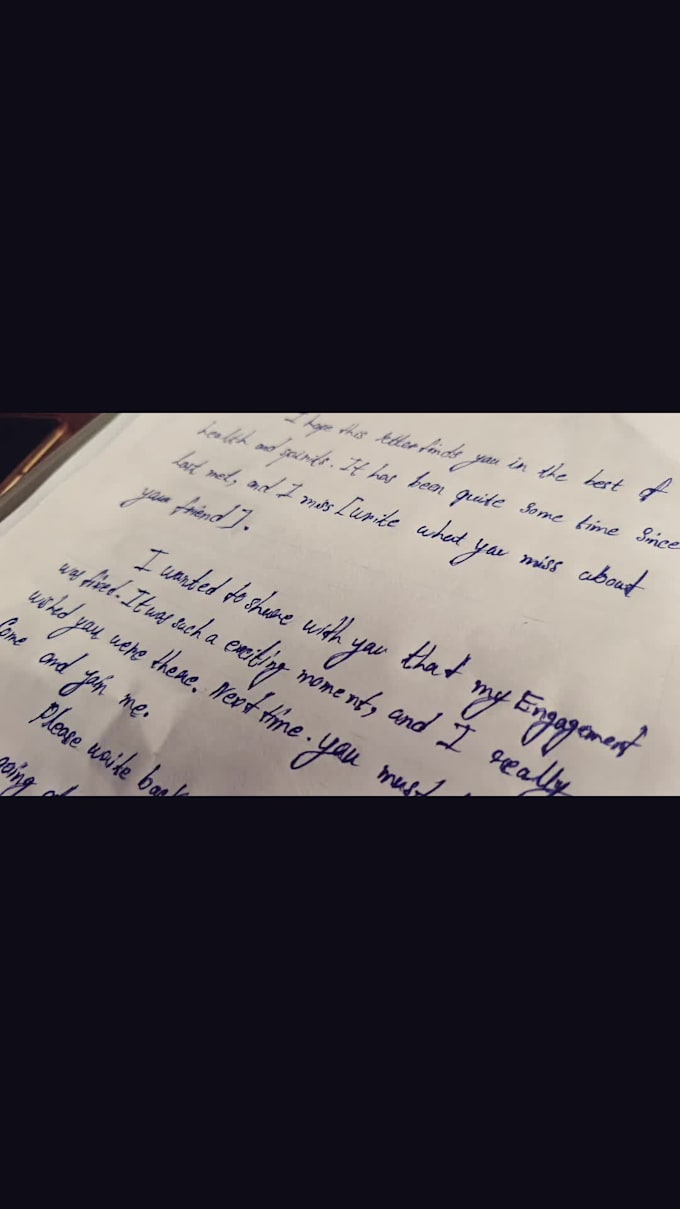 I hope this letter finds you in the best of
health and spirits. It has been quite some time since
last met, and I miss [write what you miss about
your friend].
I wanted to share with you that my Engagement
was fixed. It was such a exciting moment, and I really
wished you were there. Next time. you must
Come and join me.
Please write back
going